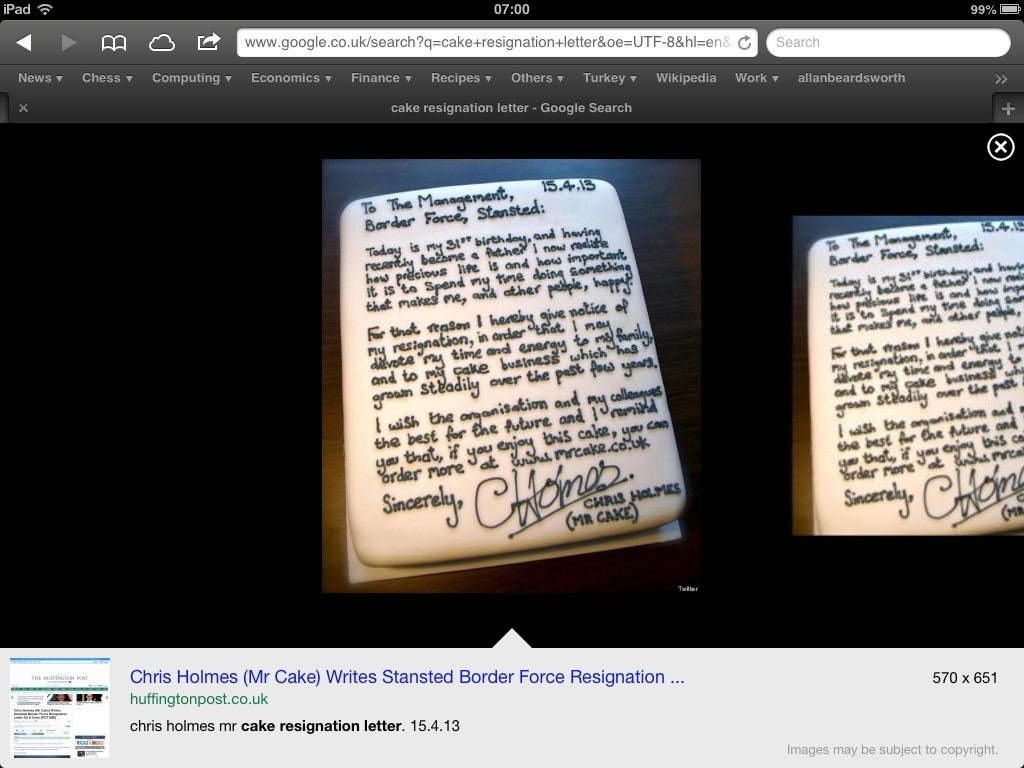 iPad 07:00 99%
www.google.co.uk/search?q=cake+resignation+letter&oe=UTF-8&hl=en& Search
News Chess Computing Economics Finance Recipes Others Turkey Wikipedia Work allanbeardsworth
cake resignation letter - Google Search
15.4.13
To The Management,
Border Force, Stansted:
Today is my 31st birthday, and having
recently become a father I now realise
how precious life is and how important
it is to spend my time doing something
that makes me, and other people, happy.
For that reason I hereby give notice of
my resignation, in order that I may
devote my time and energy to my family,
and to my cake business which has
grown steadily over the past few years.
I wish the organisation and my colleagues
the best for the future and I remind
you that, if you enjoy this cake, you can
order more at www.mrcake.co.uk
Sincerely, CHolmes.
CHRIS HOLMES
(MR CAKE)
Twitter
15.4.13
To The Management,
Border Force, Stansted:
Today is my 31st birthday, and
recently become a father I now
how precious life is and how
it is to spend my time doing
that makes me, and other people,
For that reason I hereby give
my resignation, in order that
devote my time and energy to
and to my cake business
grown steadily over the past
I wish the organisation and
the best for the future and I
you that, if you enjoy this
order more at www.mrca
Sincerely,
THE HUFFINGTON POST
Chris Holmes (Mr Cake) Writes Stansted Border Force Resignation ...
570 x 651
huffingtonpost.co.uk
chris holmes mr cake resignation letter. 15.4.13
Images may be subject to copyright.